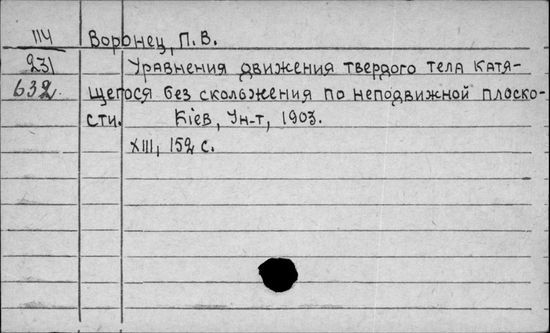 114 Воронец, П. В.
231 Уравнения движения твердого тела катя-
632. щегося без скольжения по неподвижной плоско-
сти. Кiев, Ун-т, 1903.
XIII, 152 с.